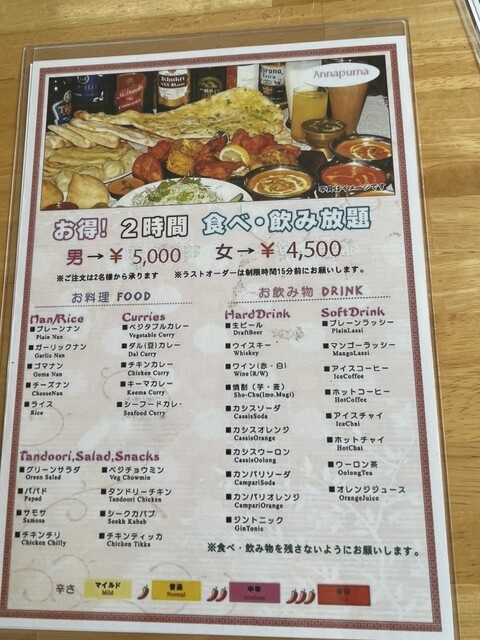 Annapurna
写真はイメージです
お得! 2時間 食べ・飲み放題
男→¥ 5,000 女→¥ 4,500
※ご注文は2名様から承ります ※ラストオーダーは制限時間15分前にお願いします。
お料理 FOOD
Nan/Rice
■プレーンナン
Plain Nan
■ガーリックナン
Garlic Nan
■ゴマナン
Goma Nan
■チーズナン
CheeseNan
■ライス
Rice
Curries
■ベジタブルカレー
Vegetable Curry
■ダル(豆)カレー
Dal Curry
■チキンカレー
Chicken Curry
■キーマカレー
Keema Curry
■シーフードカレー
Seafood Curry
Tandoori,Salad,Snacks
■グリーンサラダ
Green Salad
■パパド
Papad
■サモサ
Samosa
■チキンチリ
Chicken Chilly
■ベジチョウミン
Veg Chowmin
■タンドリーチキン
Tandoori Chicken
■シークカバブ
Seekh Kabab
■チキンティッカ
Chicken Tikka
お飲み物 DRINK
HardDrink
■生ビール
DraftBeer
■ウイスキー
Whiskey
■ワイン(赤・白)
Wine(R/W)
■焼酎(芋・麦)
Sho-Chu(Imo.Mugi)
■カシスソーダ
CassisSoda
■カシスオレンジ
CassisOrange
■カシスウーロン
CassisOolong
■カンパリソーダ
CampariSoda
■カンパリオレンジ
CampariOrange
■ジントニック
GinTonic
SoftDrink
■プレーンラッシー
PlainLassi
■マンゴーラッシー
MangoLassi
■アイスコーヒー
IceCoffee
■ホットコーヒー
HotCoffee
■アイスチャイ
IceChai
■ホットチャイ
HotChai
■ウーロン茶
OolongTea
■オレンジジュース
OrangeJuice
※食べ・飲み物を残さないようにお願いします。
辛さ
マイルド
Mild
普通
Normal
中辛
Medium